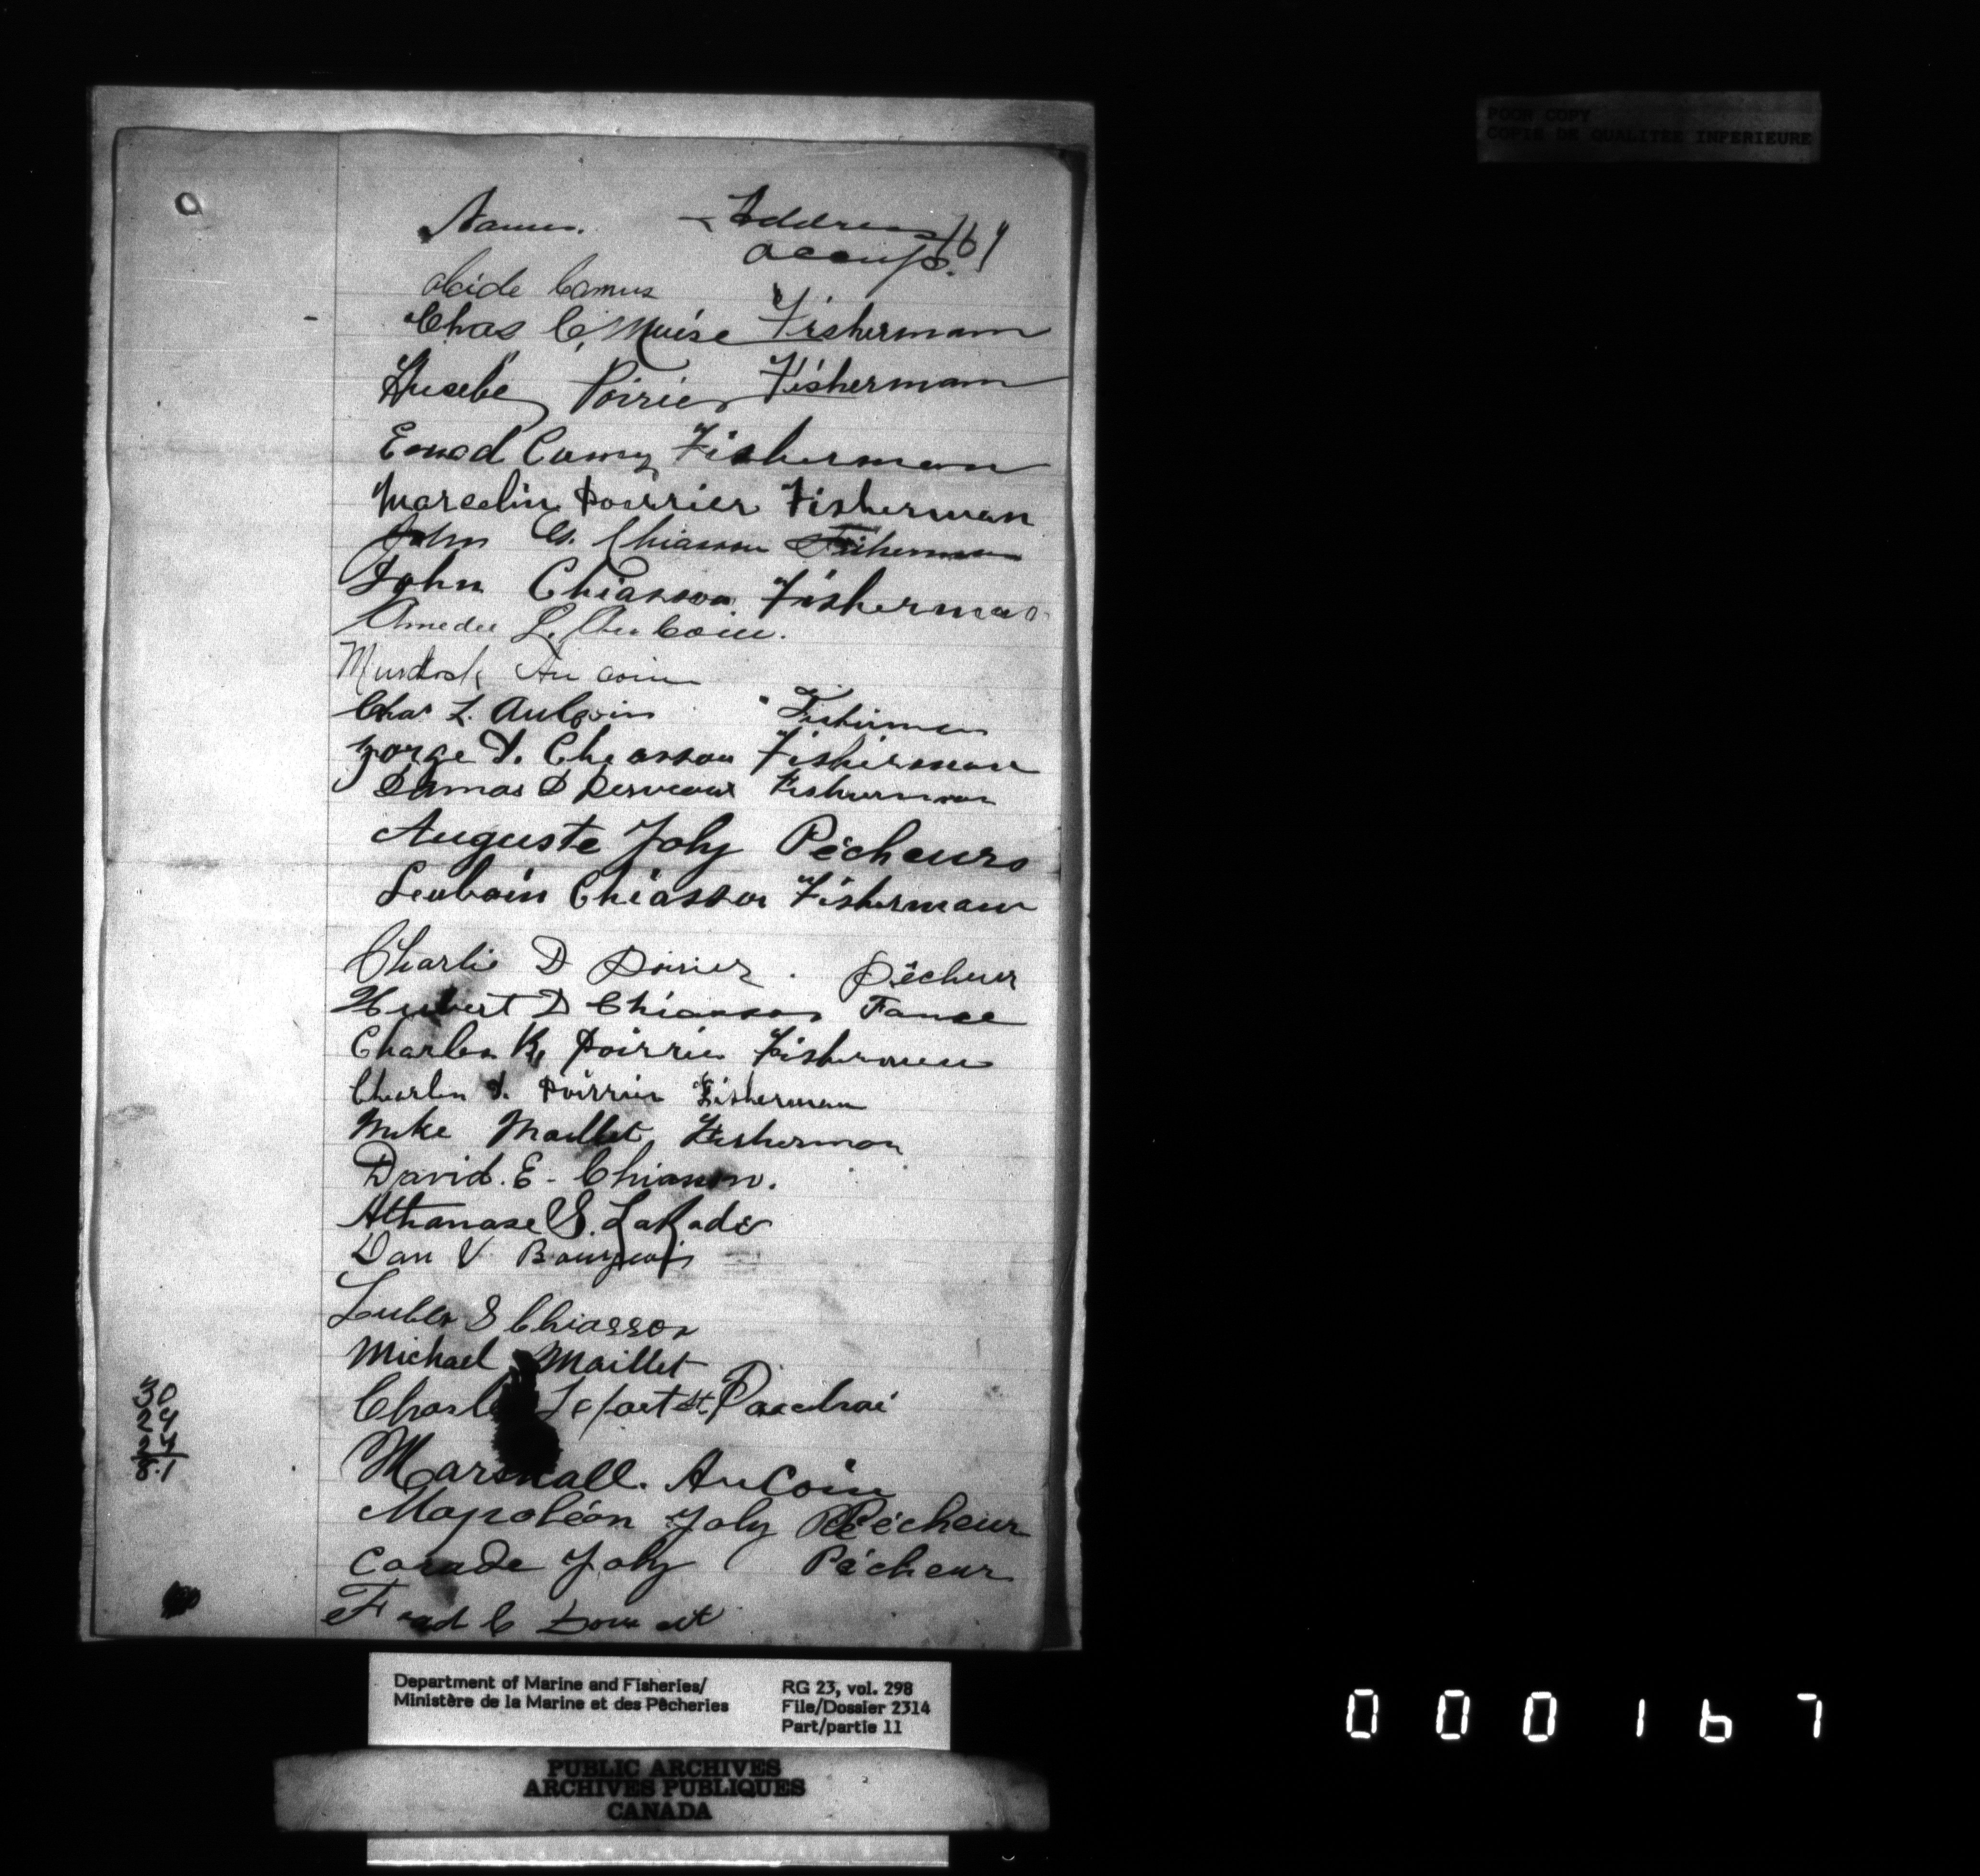 POOR COPY
COPIE DE QUALITEE INFERIEURE
Names. - Address
occup.
Alcide Camus
Chas C. Muise Fisherman
Eusebe Poirier Fisherman
Camus Fisherman
Marcelin Poirrier Fisherman
John G. Chiasson Fisherman
John Chiasson Fisherman
Amedee L. Au Coin.
Murdock Au coin
Chas L. AuCoin Fisherman
Gorge D. Chiasson Fisherman
Damas D Desveaux Fisherman
Auguste Joly Pêcheurs
Chiasson Fisherman
Charlie D Poirier. Pêcheur
Hubert D Chiasson
Charles Poirrier Fishermen
Charles Poirrier Fisherman
Mike Maillet Fisherman
David. E - Chiasson.
Athanase S. LaRade
Dan V Bourgeois
S Chiasson
Michael Maillet
Charles Lefort
Marshall. AuCoin
Napoléon Joly Pécheur
Corade Joly Pécheur
30
24
27
81
Department of Marine and Fisheries/
Ministère de la Marine et des Pêcheries
RG 23, vol. 298
File/Dossier 2314
Part/partie 11
PUBLIC ARCHIVES
ARCHIVES PUBLIQUES
CANADA
000167